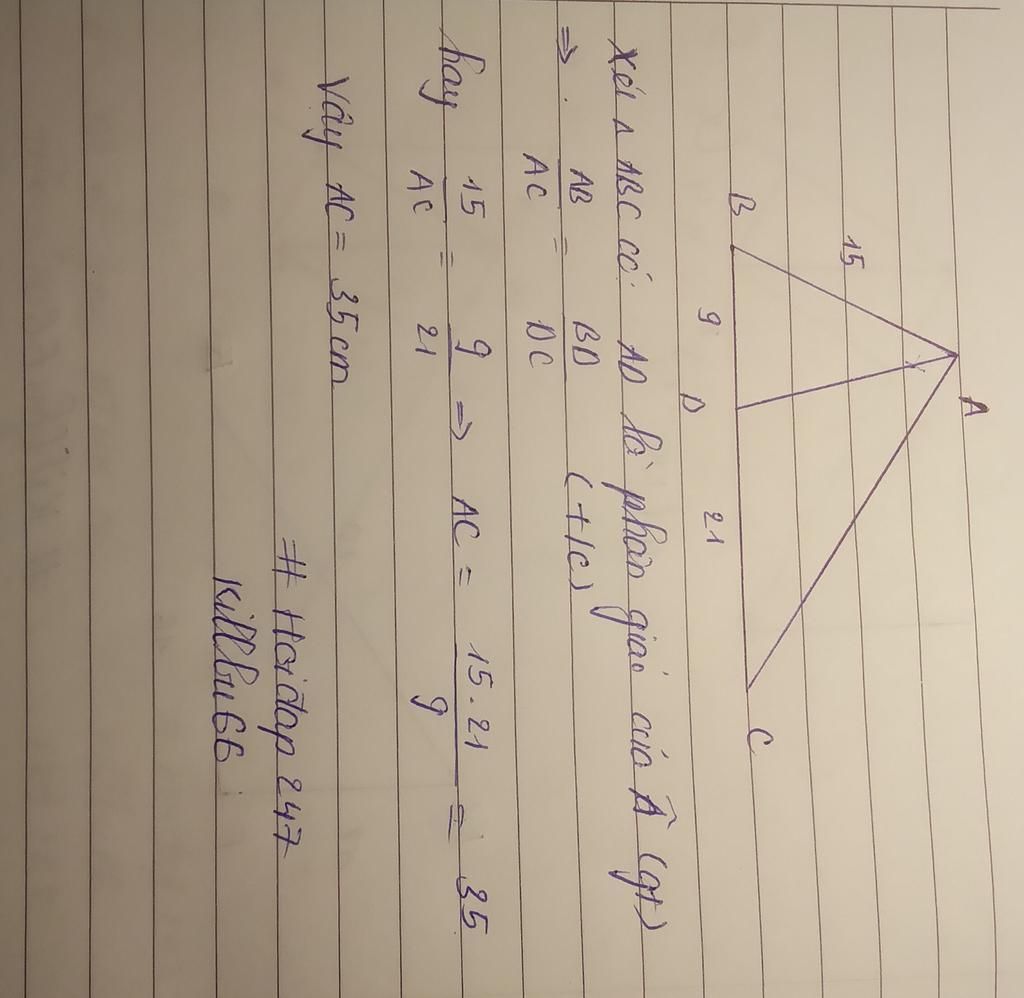 A
15
B 9 D 21 C
Xét Δ ABC có: AD là phân giác của Â (gt)
⇒ AB/AC = BD/DC (t/c)
hay 15/AC = 9/21 ⇒ AC = 15.21/9 = 35
Vậy AC = 35 cm
# Hoidap247
Killbu66